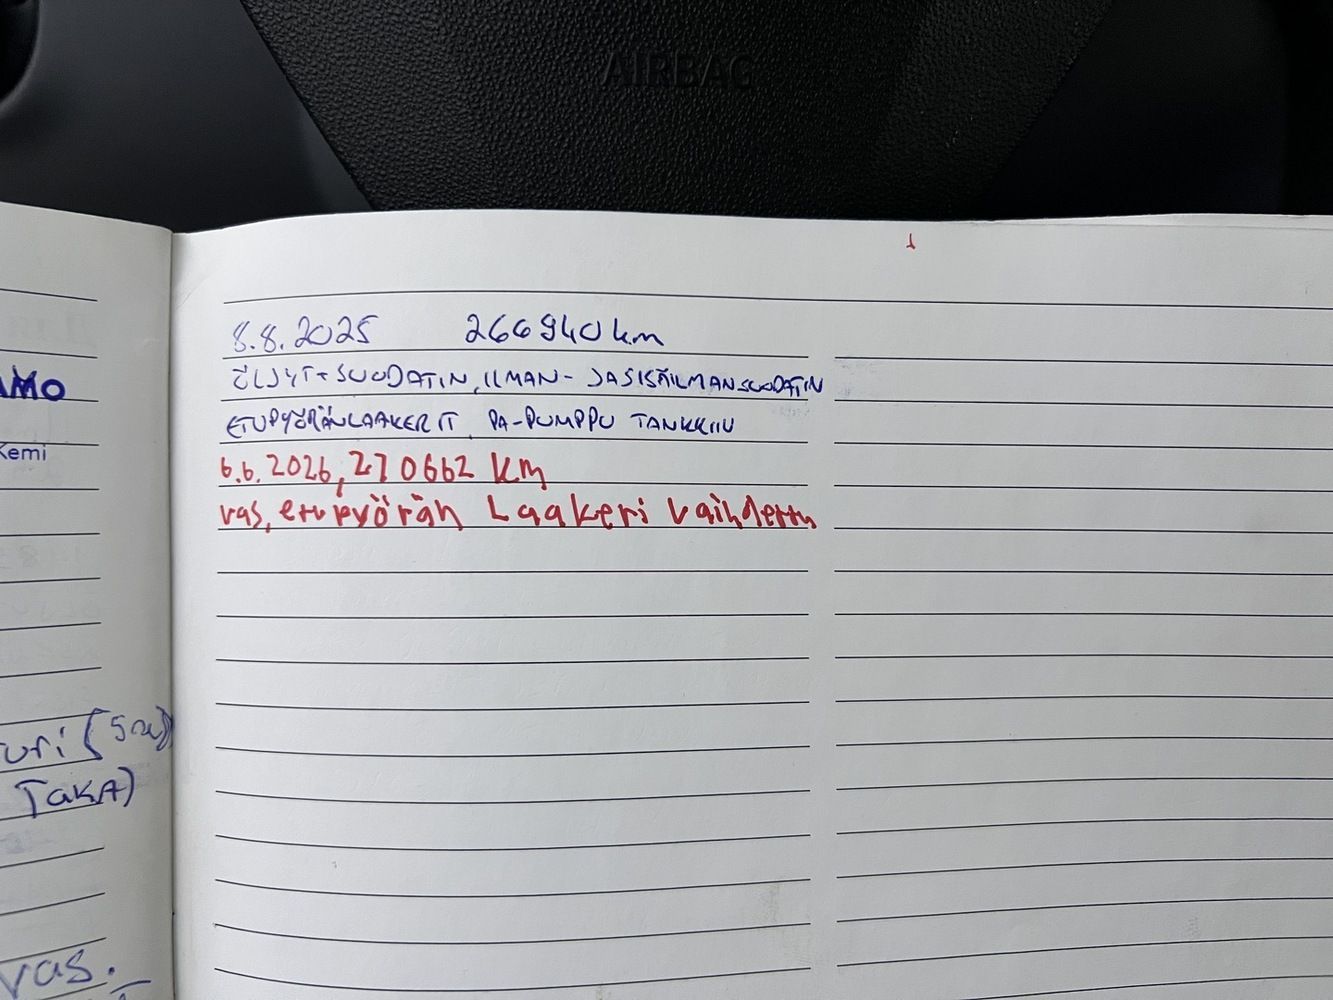 AIRBAG
AMO
Kemi
uri (5W)
TAKA)
vas.
8.8.2025 266940 km
ÖLJYT+SUODATIN, ILMAN- JA SISÄILMANSUODATIN
ETUPYÖRÄNLAAKERIT PA-PUMPPU TANKKIIN
6.6.2026, 270662 km
vas, etupyörän Laakeri vaihdettu